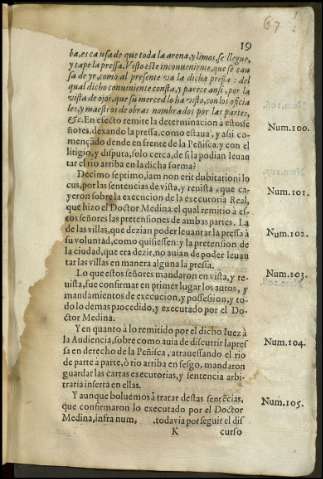 67
19
ba, es causa de que toda la arena, y limos, se llegue,
y tape la pressa. Visto este inconueniente, que se cau
sa de yr, como al presente va la dicha pressa: del
qual dicho conuiniente consta, y parece ansi, por la
vista de ojos, que su merced lo ha visto, con los oficia
les, y maestros de obras nombrados por las partes,
&c. En efecto remite la determinacion a estos se
ñores, dexando la pressa, como estaua, y asi comen
çado dende en frente de la Peñisca: y con el
litigio, y disputa, solo cerca, de si la podian leuan
tar el rio arriba en la dicha forma?
Num.100.
Decimo septimo, iam non erit dubitationi lo
cus, por las sentencias de vista, y reuista, que ca-
yeron sobre la execucion de la executoria Real,
que hizo el Doctor Medina: el qual remitio a es
tos señores las pretensiones de ambas partes. La
de las villas, que dezian poder leuantar la pressa à
su voluntad, como quisiessen: y la pretension de
la ciudad, que era dezir, no auian de poder leuan
tar las villas en manera alguna la pressa.
Num.101.
Num.102.
Lo que estos señores mandaron en vista, y re-
uista, fue confirmar en primer lugar los autos, y
mandamientos de execucion, y possession, y to
do lo demas procedido, y executado por el Do-
ctor Medina.
Num.103.
Y en quanto a lo remitido por el dicho Iuez à
la Audiencia, sobre como auia de discurrir la pres
sa en derecho de la Peñisca, atrauessando el rio
de parte a parte, ò rio arriba en sesgo, mandaron
guardar las cartas executorias, y sentencia arbi-
traria inserta en ellas.
Num.104.
Y aunque boluemos à tratar destas sentẽcias,
que confirmaron lo executado por el Doctor
Medina, infra num. , todavia por seguir el dis
Num.105.
K
curso